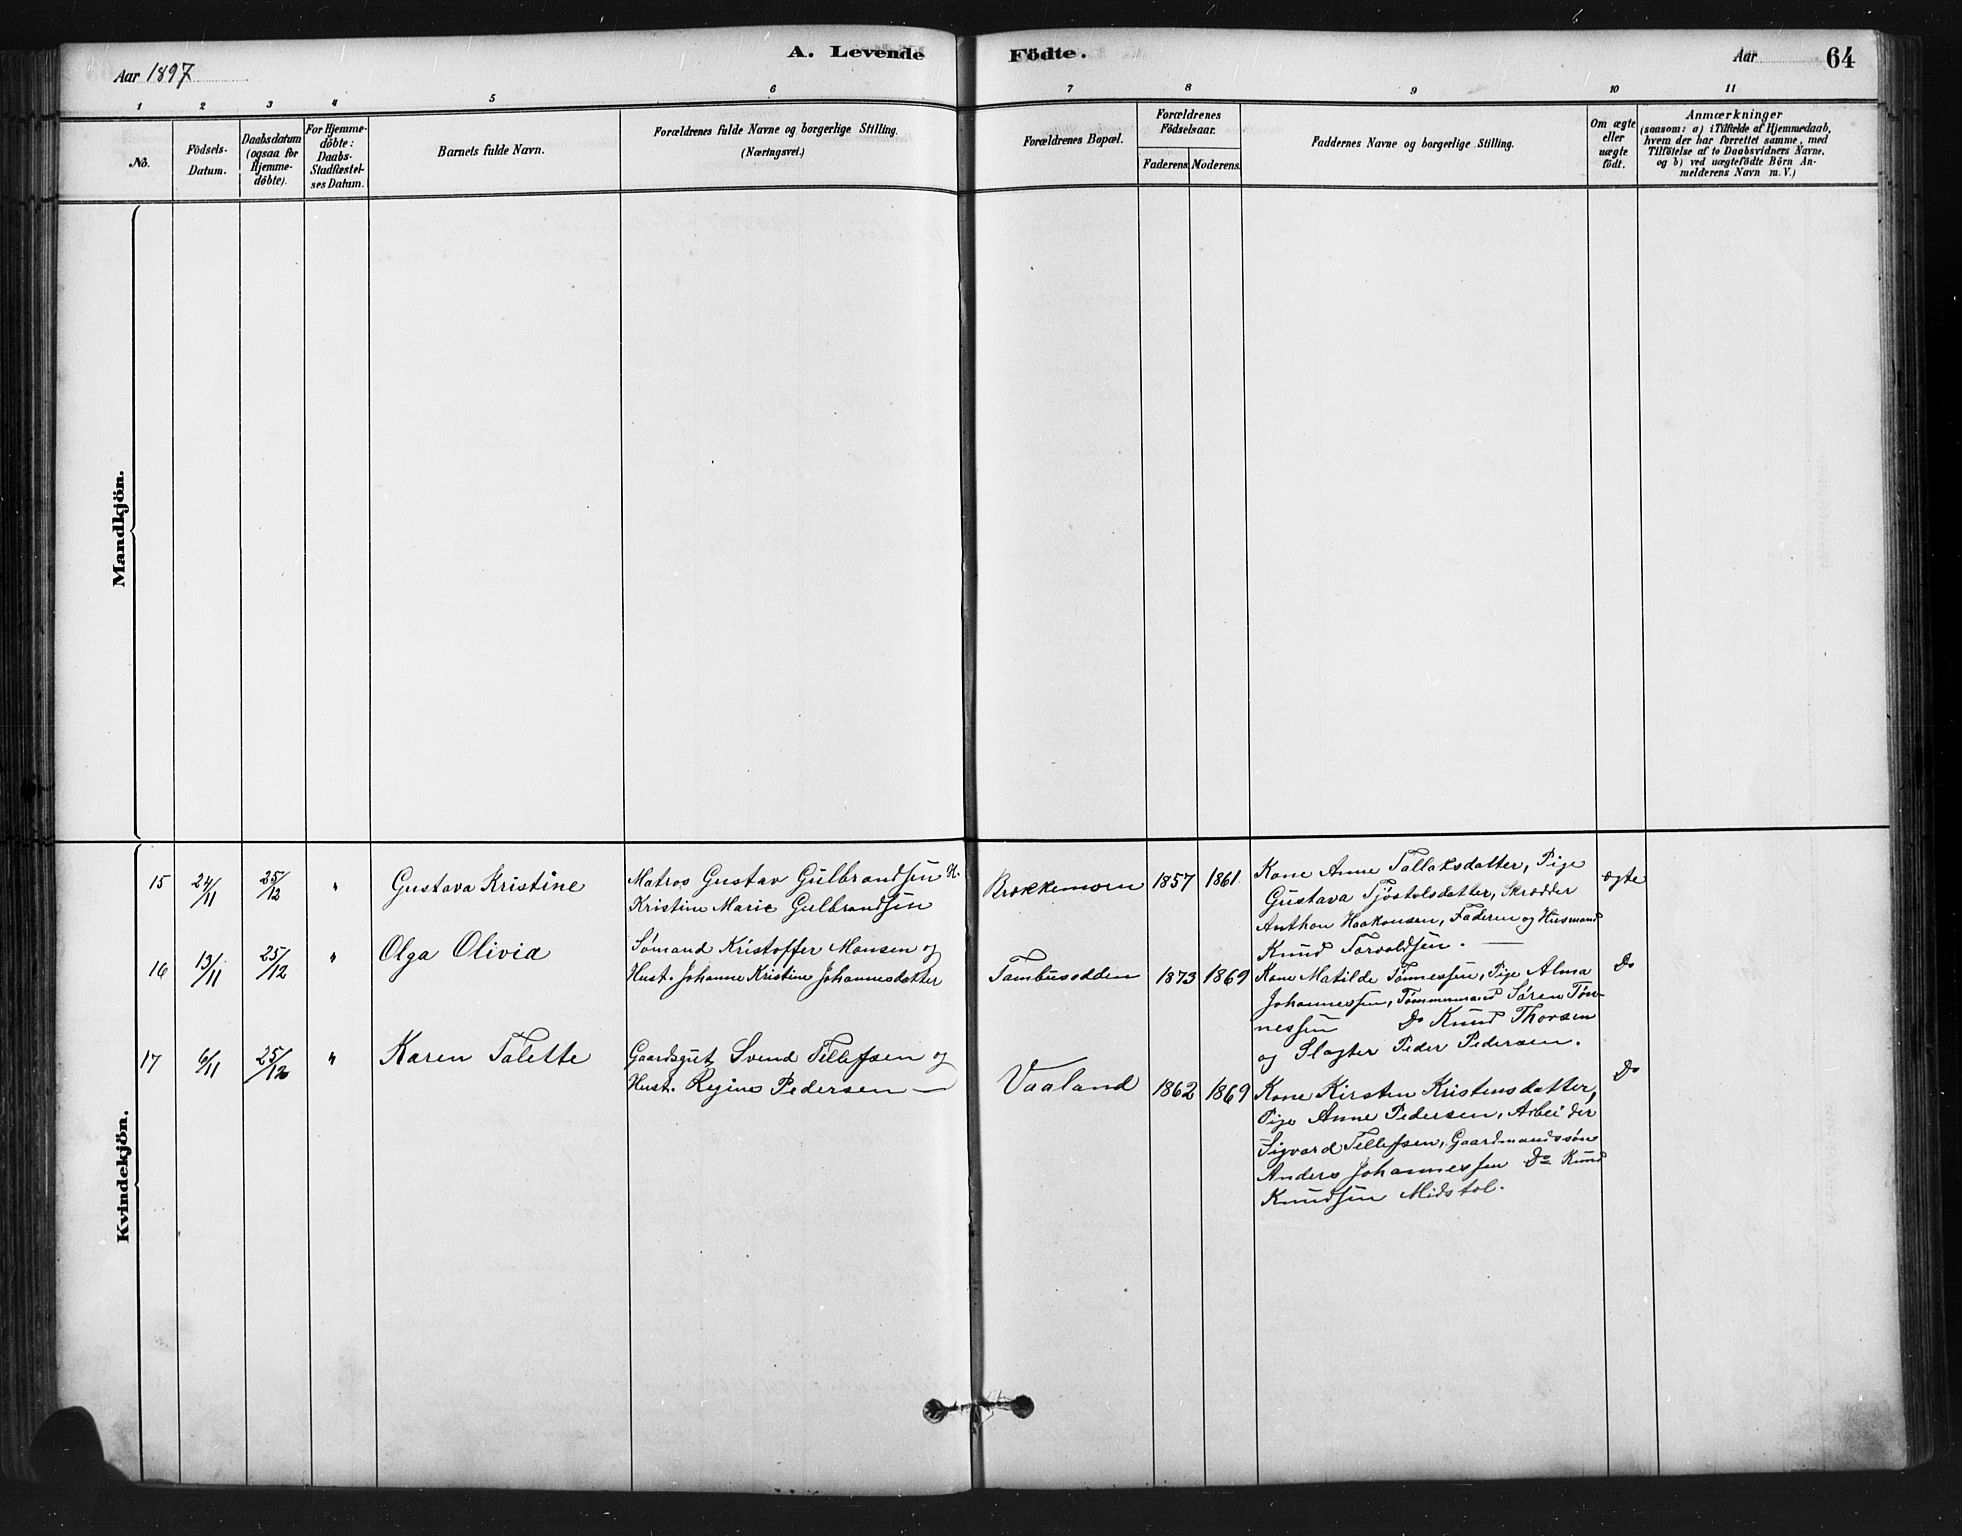 Aar 1897
A. Levende Födte.
Aar
64
1 2 3 4 5 6 7 8 9 10 11
No.
Födsels-
Datum.
Daabsdatum
(ogsaa for
Hjemme-
döbte).
For Hjemme-
döbte:
Daabs-
Stadfæstel-
ses Datum.
Barnets fulde Navn.
Forældrenes fulde Navne og borgerlige Stilling.
(Næringsvei.)
Forældrenes Bopæl.
Forældrenes
Födselsaar.
Faderens. Moderens.
Faddernes Navne og borgerlige Stilling.
Om ægte
eller
uægte
födt.
Anmærkninger
(saasom: a) i Tilfælde af Hjemmedaab,
hvem der har forrettet samme, med
Tilföielse af to Daabsvidners Navne,
og b) ved uægtefödte Börn An-
melderens Navn m. V.)
Mandkjön.
Kvindekjön.
15 24/11 25/12 " Gustava Kristine
Matros Gustav Gulbrandsen H.
Kristine Marie Gulbrandsen
Brækkemoen 1857 1861
Kone Anne Tallaksdatter, Pige
Gustava Tjöstolsdatter, Skrædder
Anthon Haakonsen, Faderen og Husmand
Knud Torvaldsen. —
ægte
16 13/11 25/12 " Olga Olivia
Sömand Kristoffer Hansen og
Hust. Johanne Kristine Johannesdatter
Tambusodden 1873 1869
Kone Matilde Tönnessen, Pige Alma
Johannessen, Tømmermand Sören Tön-
nessen Do Knud Thorsen
og Slagter Peder Pedersen.
Do
17 6/11 25/12 " Karen Talette
Gaardsgut Svend Tellefsen og
Hust. Regine Pedersen —
Vaaland 1862 1869
Kone Kirsten Kristensdatter,
Pige Anne Pedersen, Arbeider
Sigvard Tellefsen, Gaardmandssön
Anders Johannessen Do Knud
Knudsen Midstol.
Do